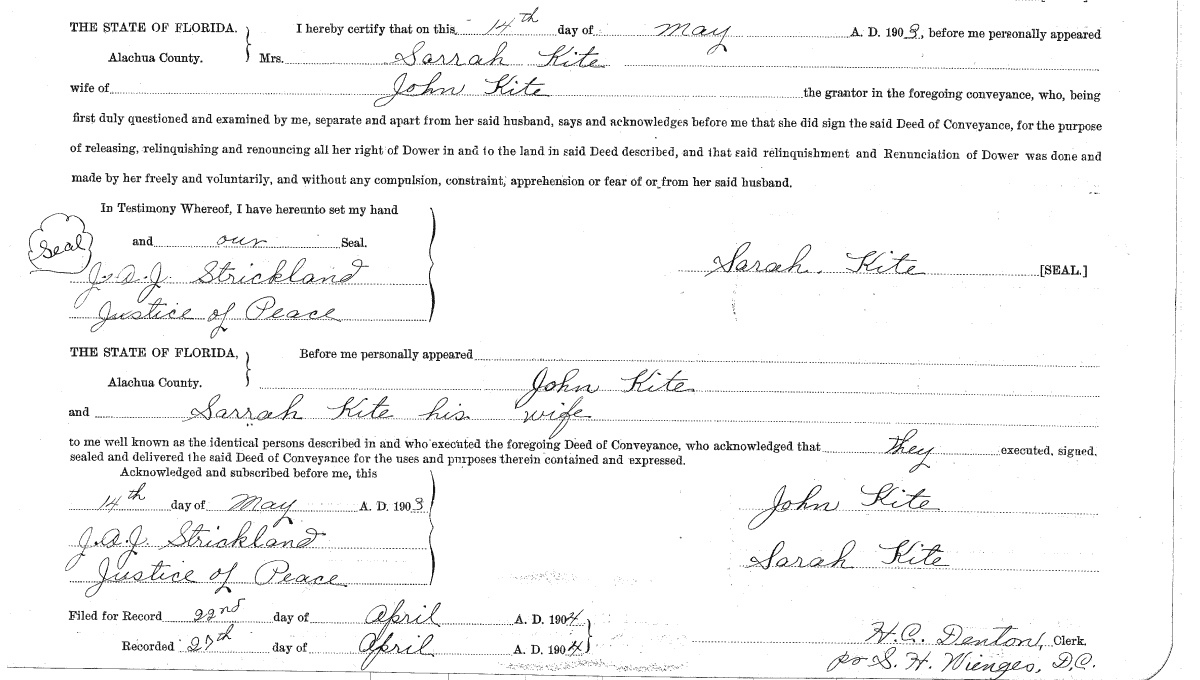 THE STATE OF FLORIDA. } I hereby certify that on this 14th day of May A. D. 1903, before me personally appeared
Alachua County. Mrs. Sarrah Kite
wife of John Kite the grantor in the foregoing conveyance, who, being
first duly questioned and examined by me, separate and apart from her said husband, says and acknowledges before me that she did sign the said Deed of Conveyance, for the purpose
of releasing, relinquishing and renouncing all her right of Dower in and to the land in said Deed described, and that said relinquishment and Renunciation of Dower was done and
made by her freely and voluntarily, and without any compulsion, constraint, apprehension or fear of or from her said husband.
In Testimony Whereof, I have hereunto set my hand
and our Seal.
Seal
Sarah. Kite [SEAL.]
J. A. J. Strickland
Justice of Peace
THE STATE OF FLORIDA, } Before me personally appeared
Alachua County. John Kite
and Sarrah Kite his wife
to me well known as the identical persons described in and who executed the foregoing Deed of Conveyance, who acknowledged that they executed, signed,
sealed and delivered the said Deed of Conveyance for the uses and purposes therein contained and expressed.
Acknowledged and subscribed before me, this
14th day of May A. D. 1903
John Kite
J. A. J. Strickland
Sarah Kite
Justice of Peace
Filed for Record 22nd day of April A. D. 1904
H. C. Denton, Clerk.
Recorded day of April A. D. 1904
pr S. H. Wienges, D.C.